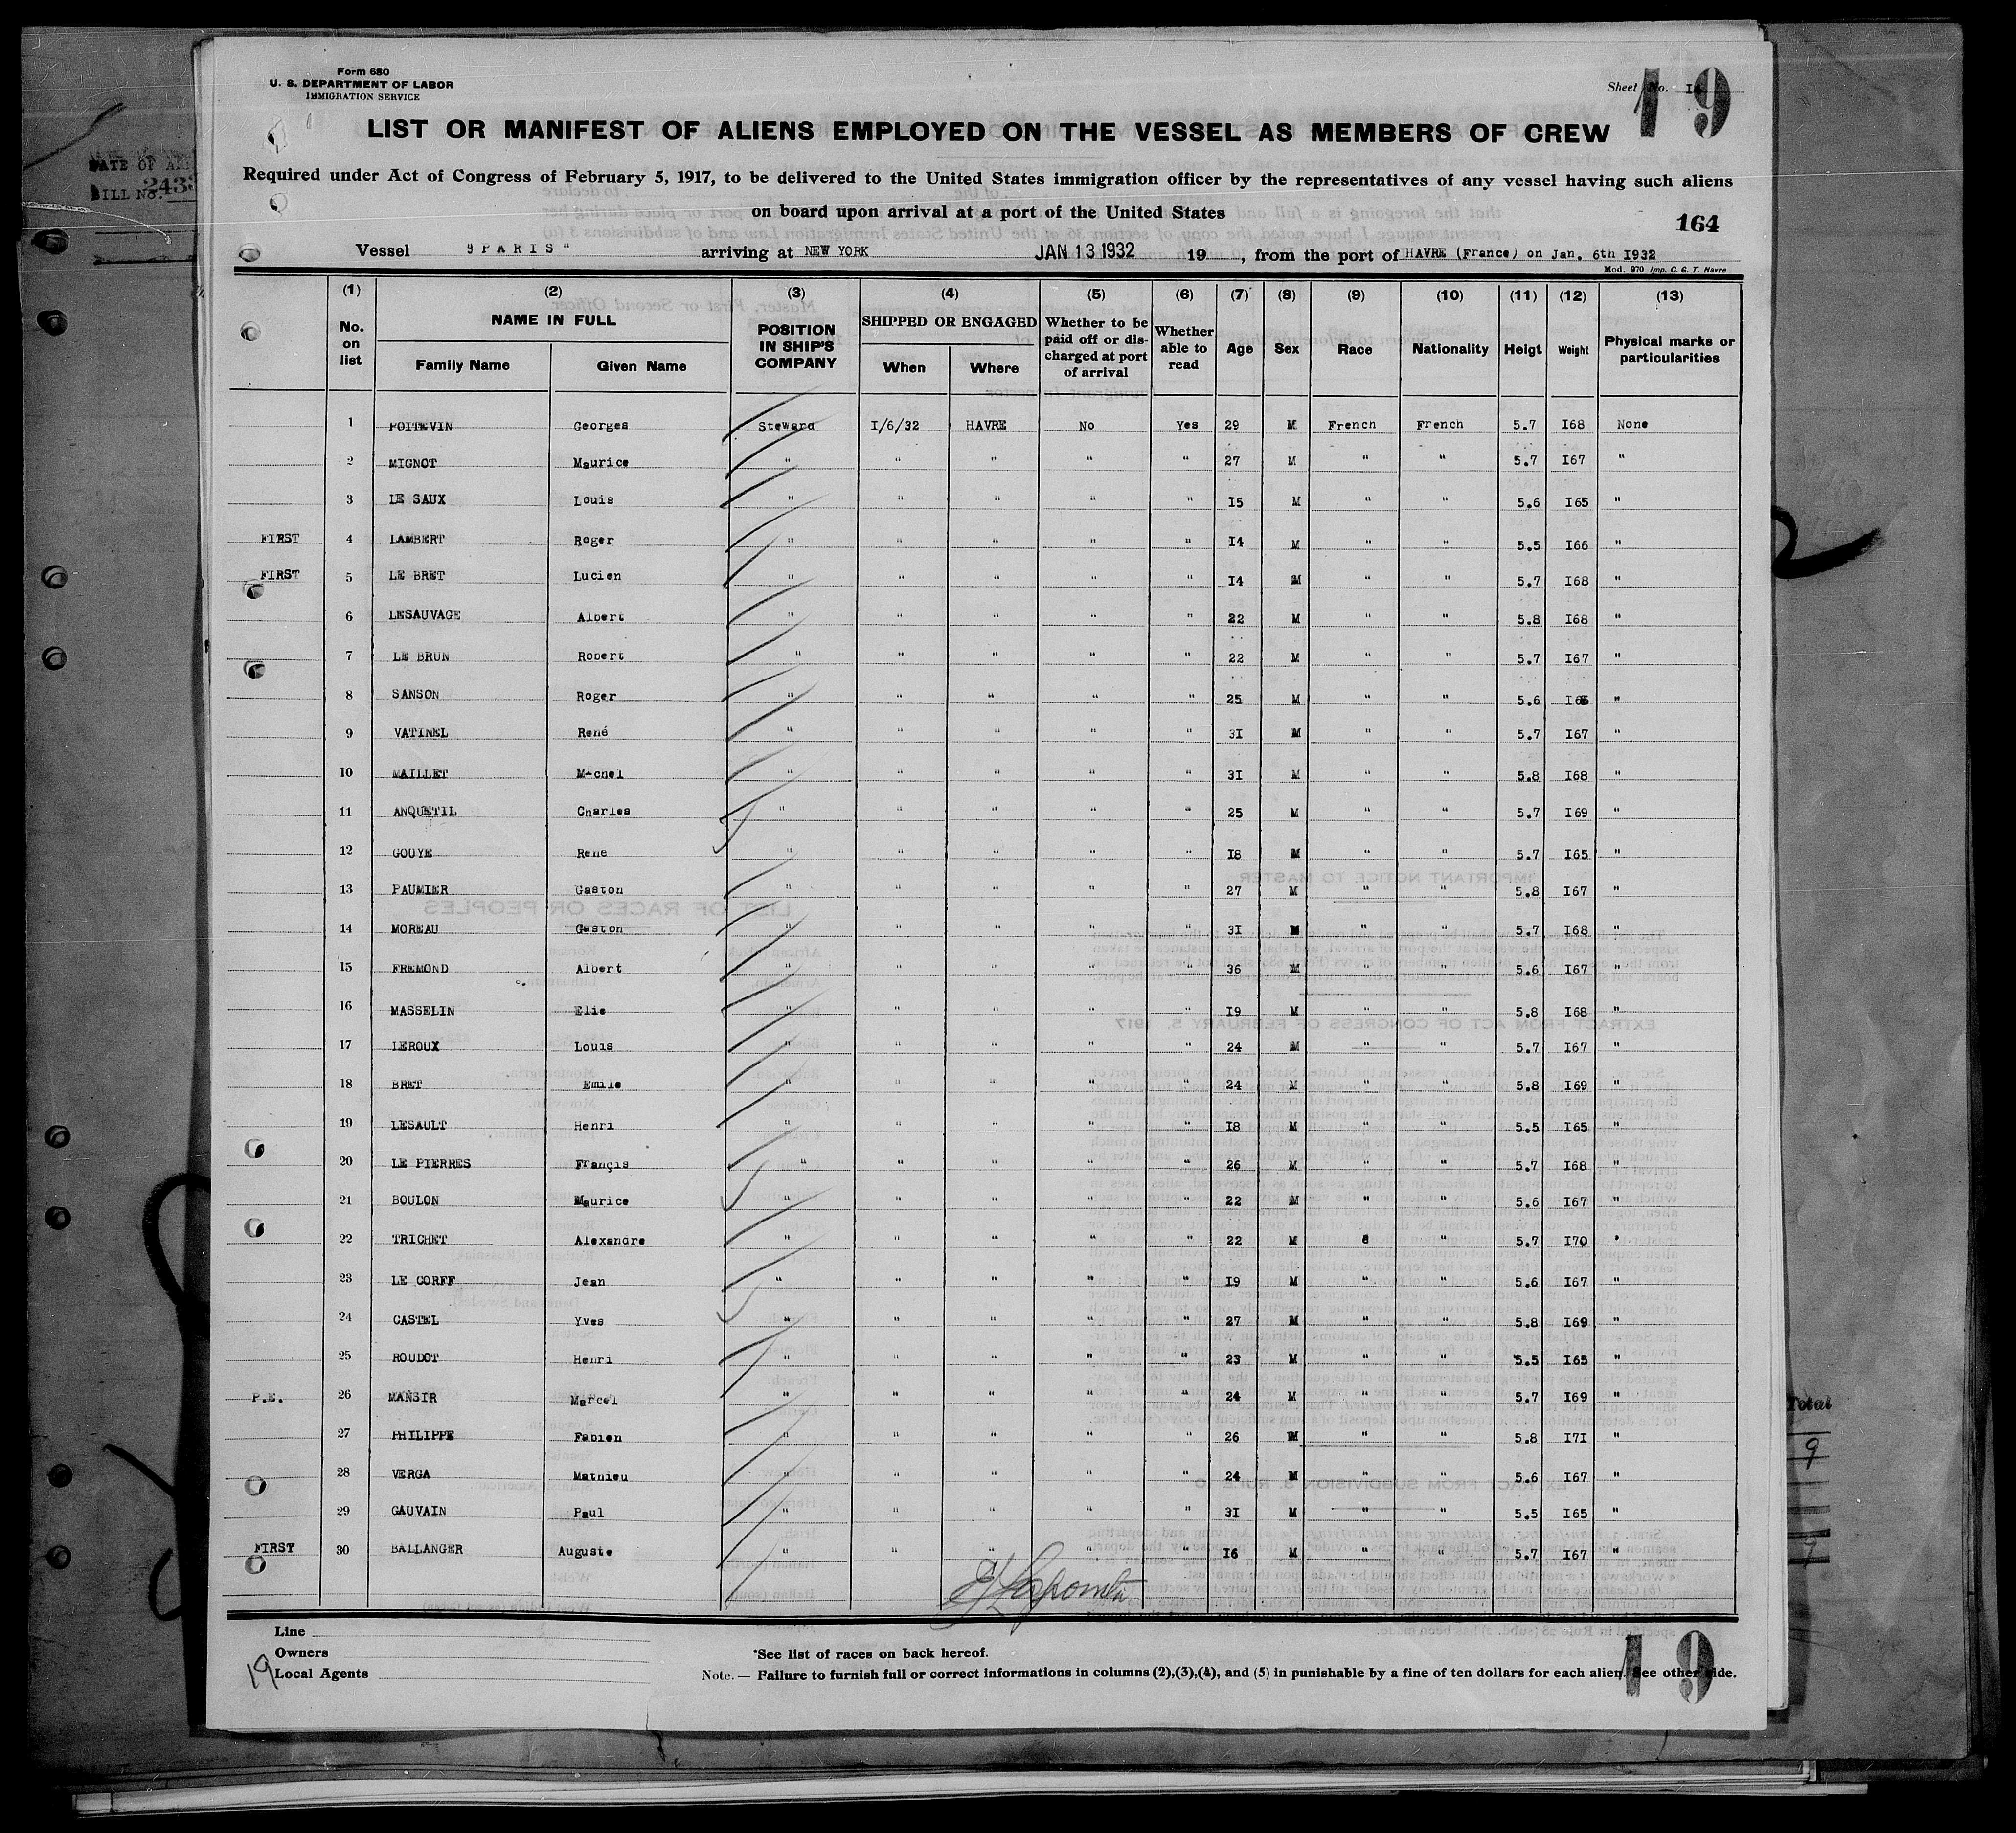 Form 680
U. S. DEPARTMENT OF LABOR
IMMIGRATION SERVICE
Sheet No.
19
LIST OR MANIFEST OF ALIENS EMPLOYED ON THE VESSEL AS MEMBERS OF CREW
Required under Act of Congress of February 5, 1917, to be delivered to the United States immigration officer by the representatives of any vessel having such aliens
on board upon arrival at a port of the United States
164
Vessel 9 PARIS " arriving at NEW YORK JAN 13 1932 19 , from the port of HAVRE (France) on Jan. 6th I932
Mod. 970 Imp. C. G. T. Havre
(1) (2) (3) (4) (5) (6) (7) (8) (9) (10) (11) (12) (13)
No. on list NAME IN FULL Family Name Given Name POSITION IN SHIP'S COMPANY SHIPPED OR ENGAGED When Where Whether to be paid off or discharged at port of arrival Whether able to read Age Sex Race Nationality Heigt Weight Physical marks or particularities
1 POITEVIN Georges Steward I/6/32 HAVRE No Yes 29 M French French 5.7 I68 None
2 MIGNOT Maurice " " " " " 27 M " " 5.7 I67 "
3 LE SAUX Louis " " " " " I5 M " " 5.6 I65 "
FIRST 4 LAMBERT Roger " " " " " I4 M " " 5.5 I66 "
FIRST 5 LE BRET Lucien " " " " " I4 M " " 5.7 I68 "
6 LESAUVAGE Albert " " " " " 22 M " " 5.8 I68 "
7 LE BRUN Robert " " " " " 22 M " " 5.7 I67 "
8 SANSON Roger " " " " " 25 M " " 5.6 "
9 VATINEL René " " " " " 3I M " " 5.7 I67 "
10 MAILLET Michel " " " " " 3I M " " 5.8 I68 "
11 ANQUETIL Charles " " " " " 25 M " " 5.7 I69 "
12 GOUYE Rene " " " " " I8 M " " 5.7 I65 "
13 PAUMIER Gaston " " " " " 27 M " " 5.8 I67 "
14 MOREAU Gaston " " " " " 3I M " " 5.7 I68 "
15 FREMOND Albert " " " " " 36 M " " 5.6 I67 "
16 MASSELIN Elie " " " " " I9 M " " 5.8 I68 "
17 LEROUX Louis " " " " " 24 M " " 5.7 I67 "
18 BRET Emile " " " " " 24 M " " 5.8 I69 "
19 LESAULT Henri " " " " " I8 M " " 5.5 I65 "
20 LE PIERRES Françis " " " " " 26 M " " 5.7 I68 "
21 BOULON Maurice " " " " " 22 M " " 5.6 I67 "
22 TRICHET Alexandre " " " " " 22 M 8 " 5.7 I70 "
23 LE CORFF Jean " " " " " I9 M " " 5.6 I67 "
24 CASTEL Yves " " " " " 27 M " " 5.8 I69 "
25 ROUDOT Henri " " " " " 23 M " " 5.5 I65 "
P.E. 26 MANSIR Marcel " " " " " 24 M " " 5.7 I69 "
27 PHILIPPE Fabien " " " " " 26 M " " 5.8 I7I "
28 VERGA Mathieu " " " " " 24 M " " 5.6 I67 "
29 GAUVAIN Paul " " " " " 3I M " " 5.5 I65 "
FIRST 30 BALLANGER Auguste " " " " " I6 M " " 5.7 I67 "
Line
Owners
Local Agents
19
*See list of races on back hereof.
Note. — Failure to furnish full or correct informations in columns (2),(3),(4), and (5) in punishable by a fine of ten dollars for each alien. See other side.
19
DATE OF
BILL No. 2433
Total
9
9